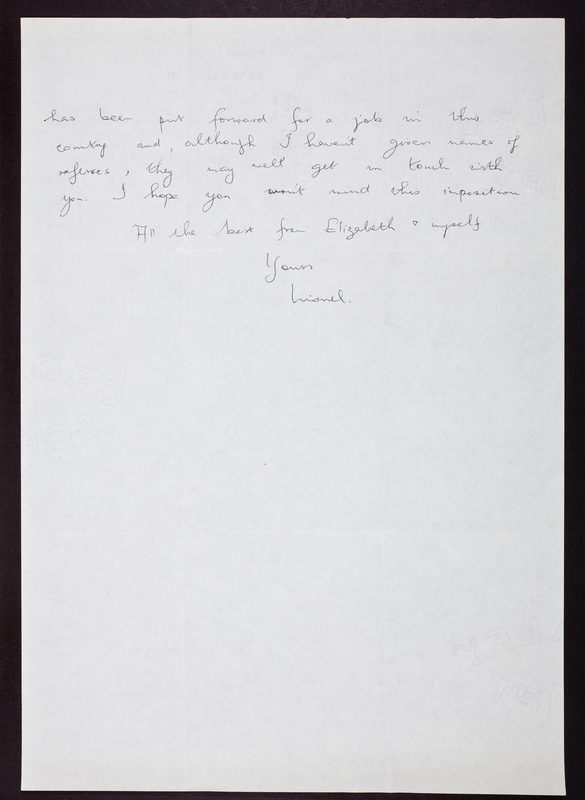 has been put forward for a job in this
country and, although I haven't given names of
referees, they may well get in touch with
you. I hope you won't mind this imposition.
All the best from Elizabeth & myself
Yours
Lionel.